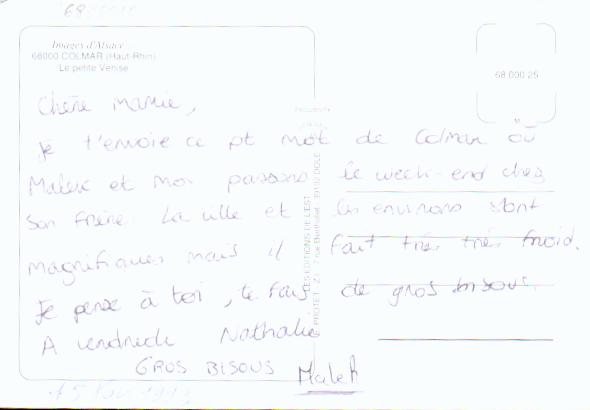 Images d'Alsace
68000 COLMAR (Haut-Rhin)
La petite Venise
68.000 25
Chère mamie,
je t'envoie ce pt mot de Colmar où
Malek et moi passons le week-end chez
son frère. La ville et les environs sont
magnifiques mais il fait très très froid.
Je pense à toi, te fais de gros bisous.
A vendredi Nathalie
GROS BISOUS Malek
LES EDITIONS DE L'EST